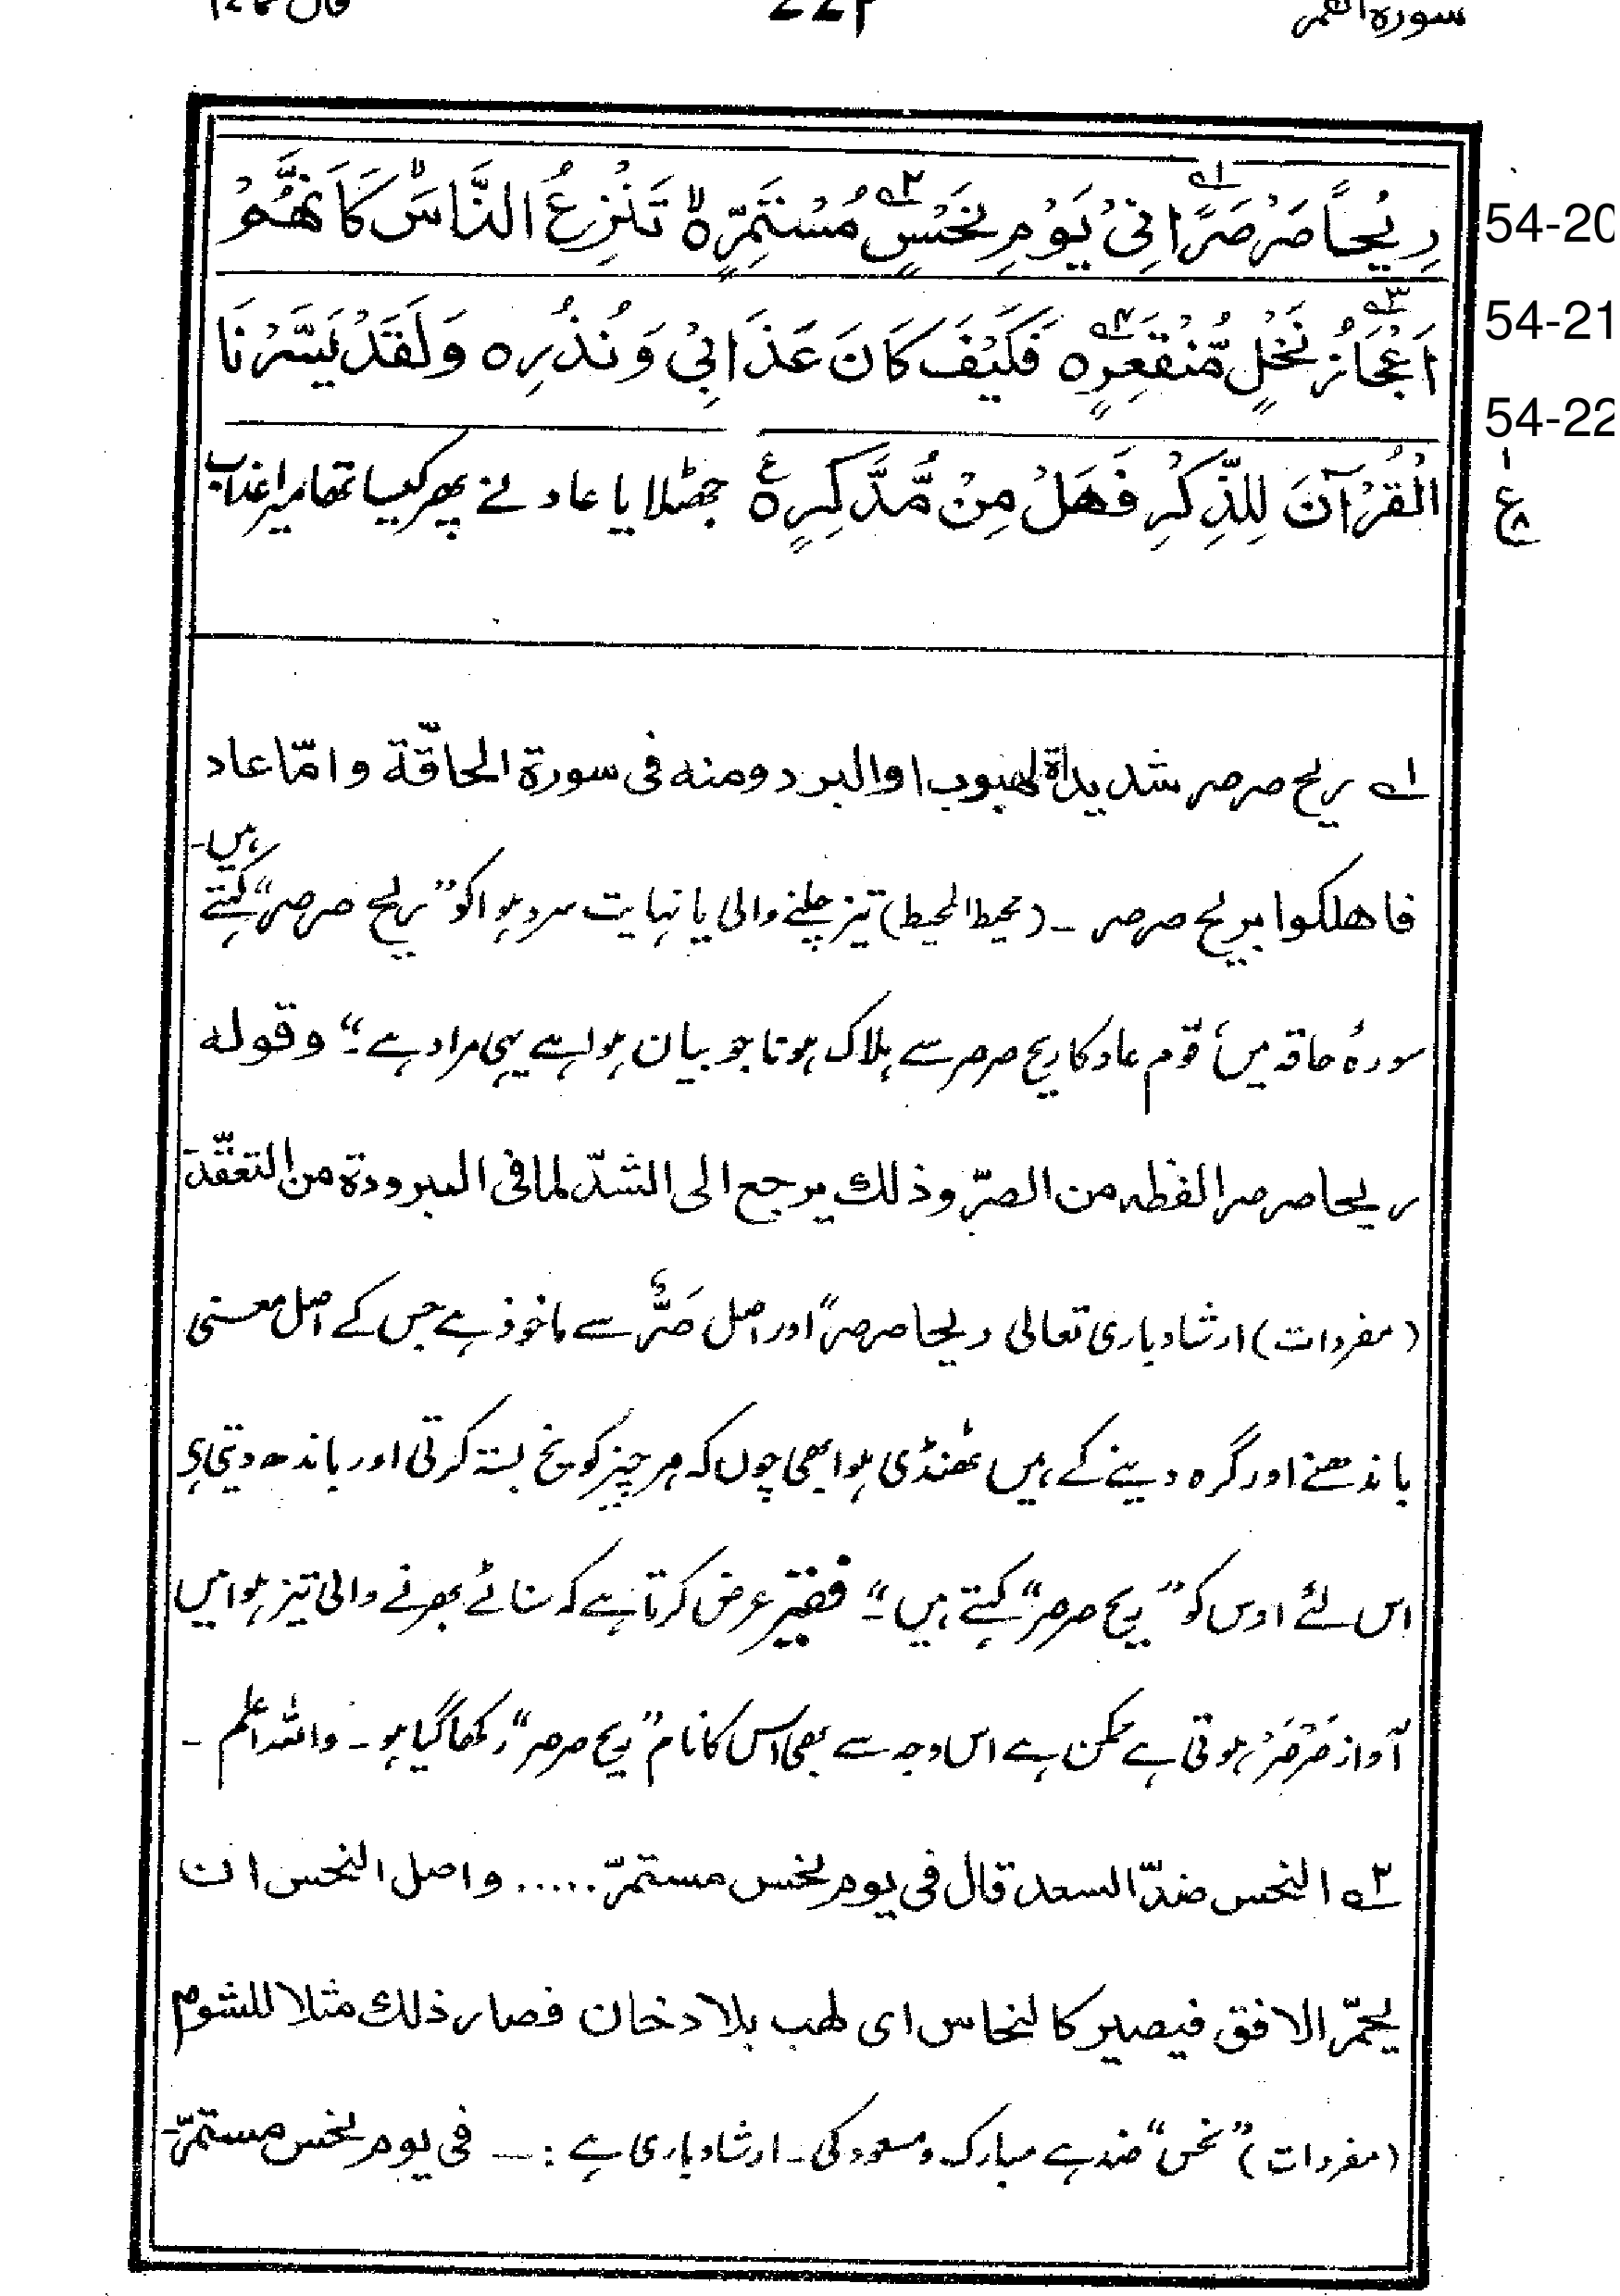 سورہ القمر
رِيْحًا صَرْصَرًا فِىْ يَوْمِ نَحْسٍ مُسْتَمِرٍّ ۙ تَنْزِعُ النَّاسَ ۙ كَاَنَّهُمْ 54-20
اَعْجَازُ نَخْلٍ مُّنْقَعِرٍ ہ فَكَيْفَ كَانَ عَذَابِىْ وَنُذُرِ ہ وَلَقَدْ يَسَّرْنَا 54-21
54-22
الْقُرْآنَ لِلذِّكْرِ فَهَلْ مِنْ مُّدَّكِرٍ ہ ع جھٹلایا عاد نے پھر کیسا تھا میرا عذاب
۱ ع ۸
۱ ریح صرصر شدیداۃ لهبوب او البرد ومنه فی سورة الحاقّة و امّا عاد
فاهلكوا بریح صرصر ۔ (محیط المحیط) تیز چلنے والی یا نہایت سرد ہوا کو ”ریح صرصر“ کہتے ہیں۔
سورۂ حاقہ میں قوم عاد کا ریح صرصر سے ہلاک ہونا جو بیان ہوا ہے یہی مراد ہے۔“ وقوله
ریحا صرصرا لفظه من الصرّ وذلك یرجع الی الشدّ لما فی البرودة من التعقّد
(مفردات) ارشاد باری تعالی ریحا صرصراً اور اصل صَرٌّ سے ماخوذ ہے جس کے اصل معنی
باندھنے اور گرہ دینے کے ہیں ٹھنڈی ہوا بھی چوں کہ ہر چیز کو یخ بستہ کرتی اور باندھ دیتی ہے
اس لئے اوس کو ”ریح صرصر“ کہتے ہیں۔“ فقیر عرض کرتا ہے کہ سناٹے بھرنے والی تیز ہوا میں
آواز صَرْصَرْ ہوتی ہے ممکن ہے اس وجہ سے بھی اس کا نام ”ریح صرصر“ رکھا گیا ہو۔ واللہ اعلم ۔
۲ النحس ضدّ السعد قال فی یوم نحس مستمرّ ..... واصل النحس ان
یحمّر الافق فیصیر کالنحاس ای لهب بلا دخان فصار ذلك مثلا للشوم
(مفردات) ”نحس“ ضد ہے مبارک و مسعود کی۔ ارشاد باری ہے :— فی یوم نحس مستمرّ۔